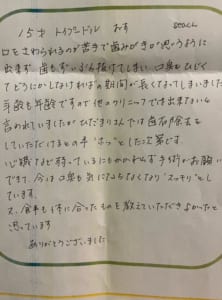 15才 トイプードル おす
口をさわられるのが苦手で歯みがきが思うように
出来ず 歯もずいぶん抜けてしまい、口臭もひどく
てどうにかしなければの期間が長くなってしまいました
年齢も年齢ですので他のクリニックでは出来ないと
言われていましたがひだまりさんでは歯石除去を
していただけるとの事 “ホッ”とした次第です。
心臓など持っているにもかかわらず手術がお願い
できて、今は口臭も気にならなくなり“スッキリ”とし
ています。
又、食事も体に合ったものを教えていただきよかったと
思っています
ありがとうございました